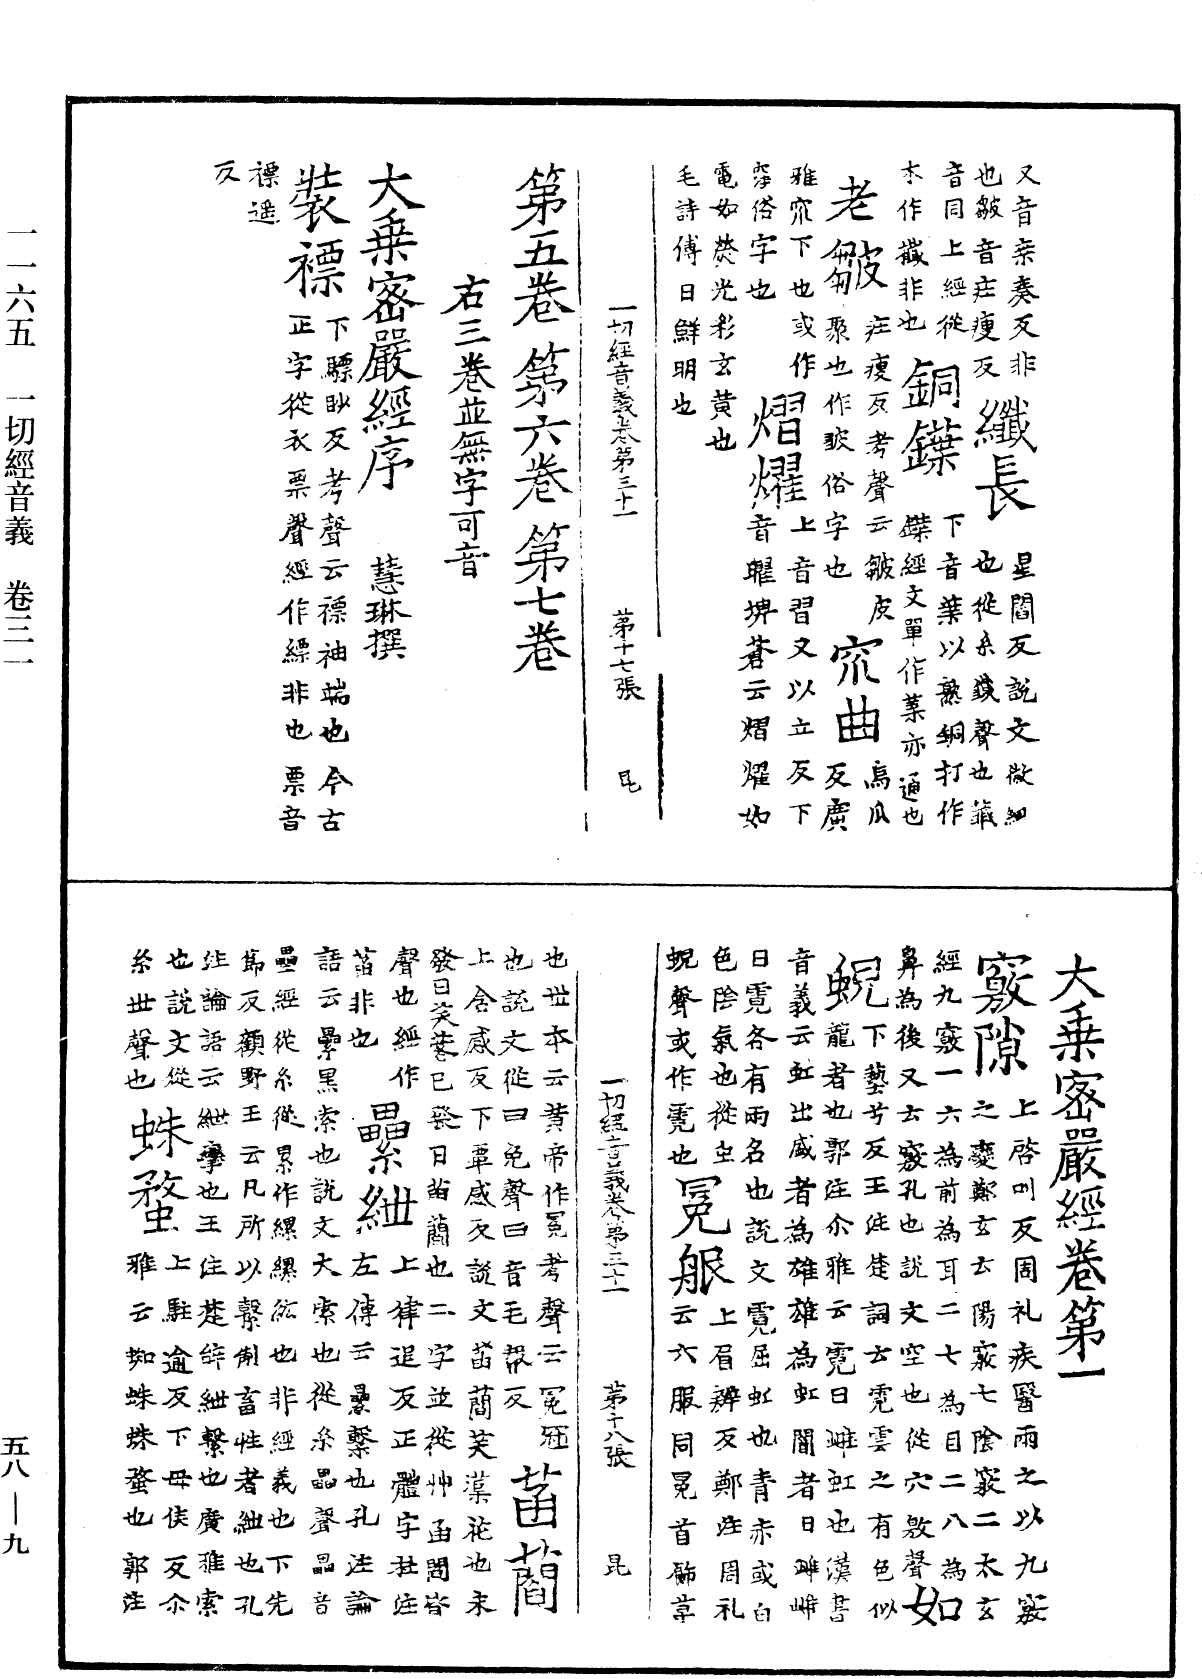 又音奏奏反非
也皺音莊瘦反
音同上經從
本作韱非也
纖長
星閻反說文微細
也從糸韱聲也韱
銅鍱
下音葉以熟銅打作
鍱經文單作葉亦通也
老皺
莊瘦反考聲云皺皮
聚也作皱俗字也
窊曲
烏瓜
反廣
雅窊下也或作
窏俗字也
熠燿
上音習又以立反下
音曜埤蒼云熠燿如
電如熒光彩玄黃也
毛詩傳曰鮮明也
一切經音義卷第三十一 第十七張 昆
第五卷 第六卷 第七卷
右三卷並無字可音
大乘密嚴經序 慧琳撰
裝褾
下驃眇反考聲云褾袖端也今古
正字從衣票聲經作縹非也票音
褾遥
反
大乘密嚴經卷第一
竅隙
上啓叫反周礼疾醫兩之以九竅
之變鄭玄云陽竅七陰竅二太玄
經九竅一六為前為耳二七為目二八為
鼻為後又云竅孔也說文空也從穴敫聲
如
蜺
下藝兮反王注楚詞云霓雲之有色似
龍者也郭注尒雅云霓曰雌虹也漢書
音義云虹出盛者為雄雄為虹闇者曰雌雌
曰霓各有兩名也說文霓屈虹也青赤或白
色陰氣也從虫
蜺聲或作霓也
冕服
上眉辨反鄭注周礼
云六服同冕首飾草
一切經音義卷第三十一 第十八張 昆
也世本云黃帝作冕考聲云冕冠
也說文從冃免聲冃音毛報反
菡萏
上含感反下覃感反說文菡萏芙蕖花也未
發曰芙蓉已發曰菡萏也二字並從艸函閻皆
聲也經作
菡非也
纍紲
上律追反正體字杜注
左傳云纍繫也孔注論
語云纍黑索也說文大索也從糸畾聲畾音
壘經從糸從累作縲縲紘也非經義也下先
節反顧野王云凡所以繫制畜牲者紲也孔
注論語云紲攣也王注楚辞紲繫也廣雅索
也說文從
糸世聲也
蛛蝥
上駐逾反下母侯反尒
雅云蜘蛛蛛蝥也郭注
一一六五 一切經音義 卷三一
五八—九